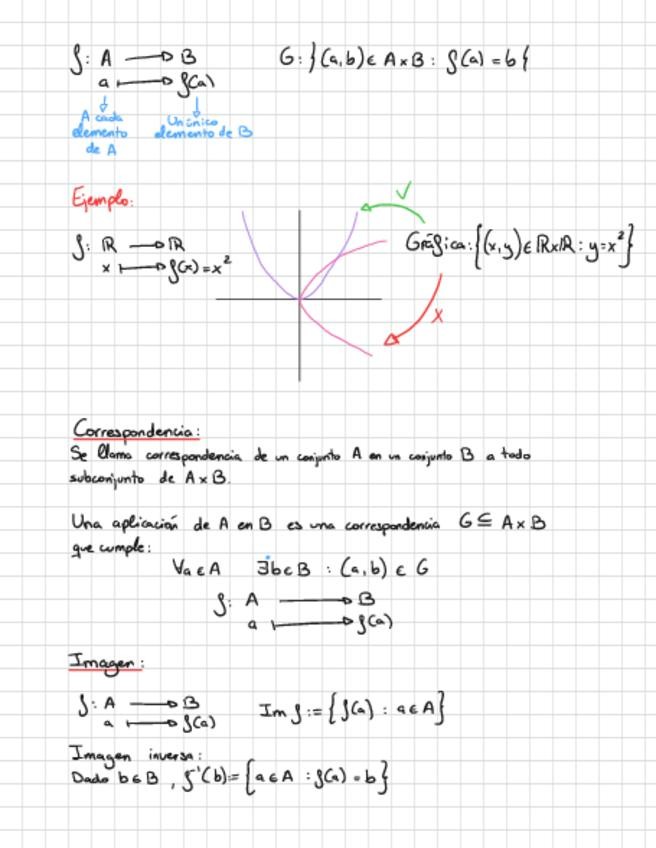 f: A → B G: }(a,b) ∈ A×B : f(a) = b{
a ↦ f(a)
A cada elemento de A
Un único elemento de B
Ejemplo:
f: ℝ → ℝ
x ↦ f(x) = x²
Gráfica: {(x,y) ∈ ℝxℝ : y=x²}
✓
X
Correspondencia:
Se llama correspondencia de un conjunto A en un conjunto B a todo
subconjunto de A×B.
Una aplicación de A en B es una correspondencia G ⊆ A×B
que cumple:
∀a ∈ A ∃̇b ∈ B : (a,b) ∈ G
f: A → B
a ↦ f(a)
Imagen:
f: A → B Im f := {f(a) : a ∈ A}
a ↦ f(a)
Imagen inversa:
Dado b ∈ B , f⁻¹(b) = {a ∈ A : f(a) = b}